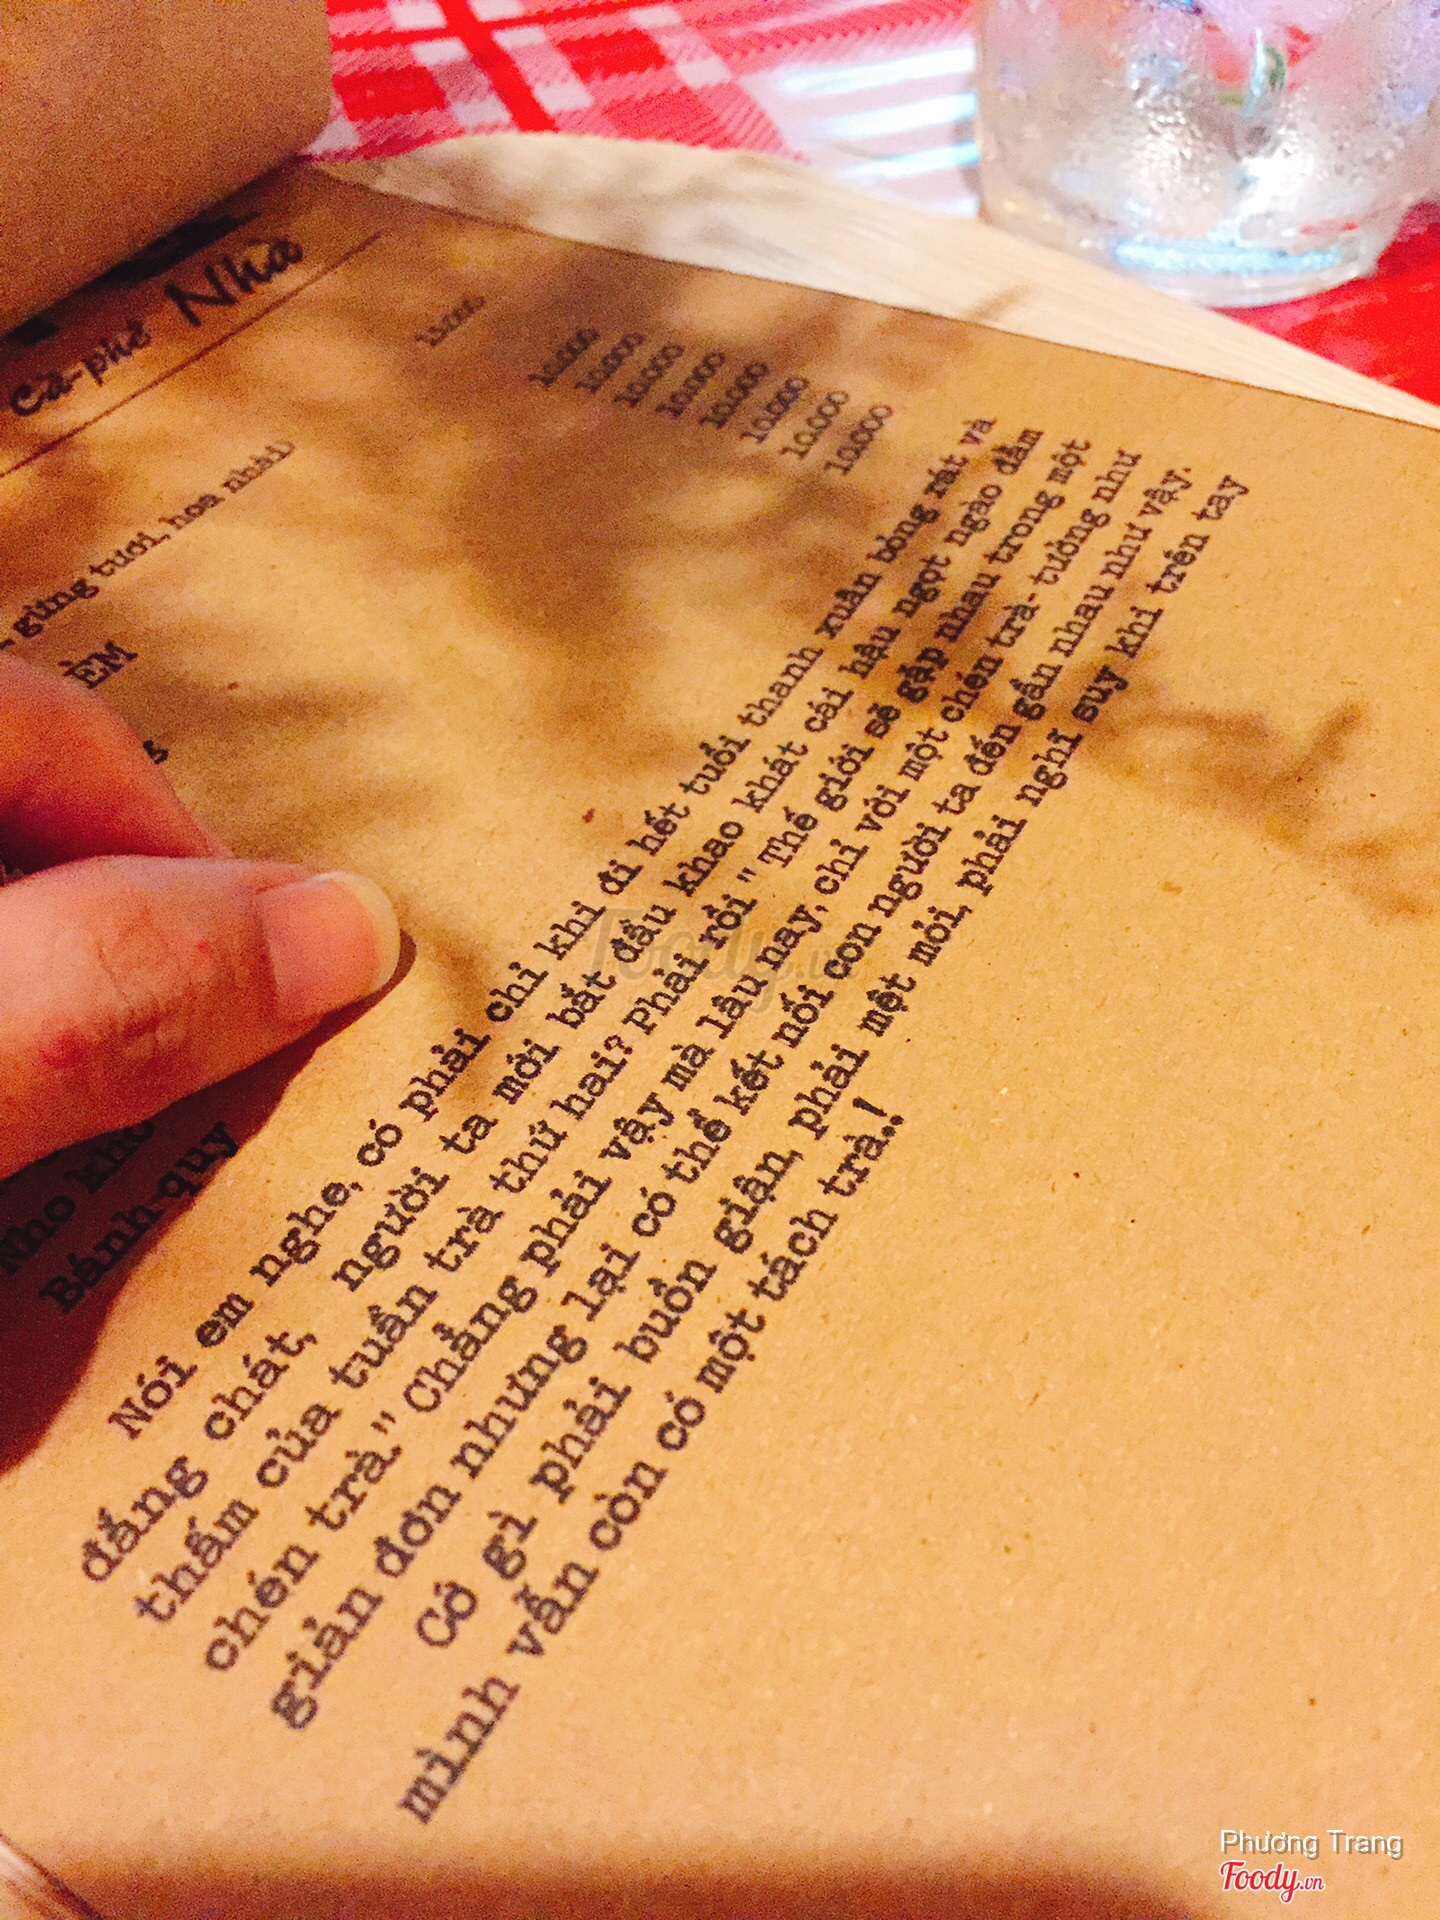 Cà-phê Nhà
gừng tươi, hoa nhài
10.000
10.000
10.000
10.000
10.000
10.000
10.000
10.000
ÈM
Nho khô
Bánh quy
Nói em nghe, có phải chỉ khi đi hết tuổi thanh xuân bỏng rát và
đắng chát, người ta mới bắt đầu khao khát cái hậu ngọt ngào đằm
thắm của tuần trà thứ hai? Phải rồi " Thế giới sẽ gặp nhau trong một
chén trà." Chẳng phải vậy mà lâu nay, chỉ với một chén trà- tưởng như
giản đơn nhưng lại có thể kết nối con người ta đến gần nhau như vậy.
Cớ gì phải buồn giận, phải mệt mỏi, phải nghĩ suy khi trên tay
mình vẫn còn có một tách trà..!
Foody.vn
Phương Trang
Foody.vn